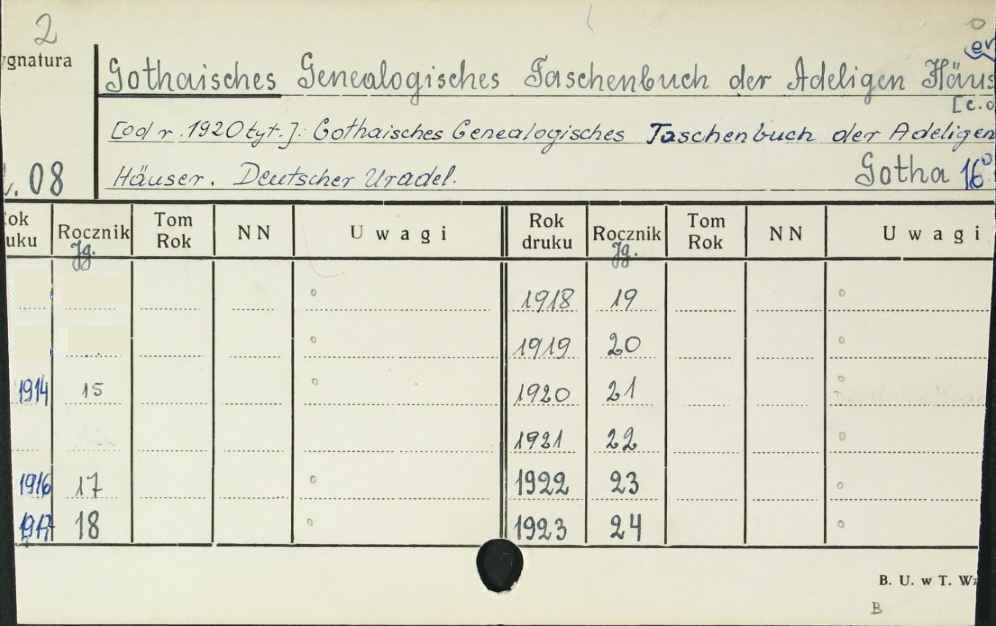 2
ygnatura
Gothaisches Genealogisches Taschenbuch der Adeligen Häus
er
[c.d
[od r. 1920 tyt.]: Gothaisches Genealogisches Taschenbuch der Adeligen
08 Häuser. Deutscher Uradel. Gotha 16°
ok uku Rocznik Jg. Tom Rok NN Uwagi Rok druku Rocznik Jg. Tom Rok NN Uwagi
1918 19
1919 20
1914 15 1920 21
1921 22
1916 17 1922 23
1917 18 1923 24
B. U. w T. W
B